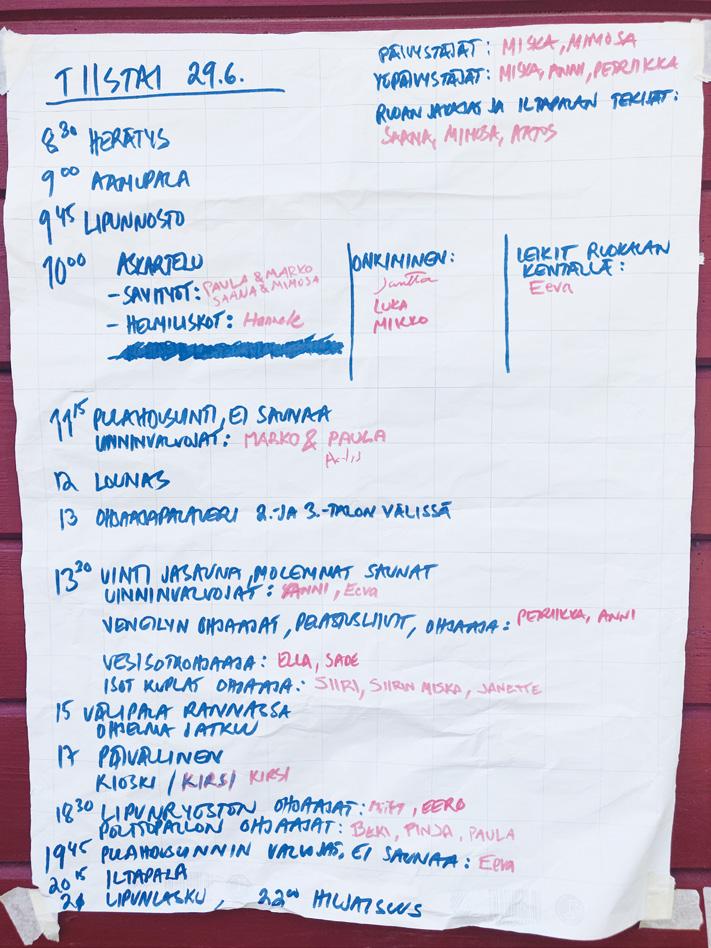 TIISTAI 29.6.
PÄIVYSTÄJÄT: MISKA, MIMOSA
YÖPÄIVYSTÄJÄT: MISKA, ANNI, PETRIIKKA
RUOAN JAKAJAT JA ILTAPALAN TEKIJÄT:
SAANA, MIMOSA, AATOS
8³⁰ HERÄTYS
9⁰⁰ AAMUPALA
9⁴⁵ LIPUNNOSTO
10⁰⁰ ASKARTELU
-SAVITYÖT: PAULA & MARKO
SAANA & MIMOSA
-HELMILISKOT:
ONKIMINEN:
LUKA
MIKKO
LEIKIT RUOKALAN
KENTÄLLÄ:
Eeva
11¹⁵ PULAHDUSUINTI, EI SAUNAA
UINNINVALVOJAT: MARKO & PAULA
12 LOUNAS
13 OHJAAJAPALAVERI 2.-JA 3.-TALON VÄLISSÄ
13²⁰ UINTI JA SAUNA, MOLEMMAT SAUNAT
UINNINVALVOJAT: ANNI, Eeva
VENEILYN OHJAAJAT, PELASTUSLIIVIT, OHJAAJA: PETRIIKKA, ANNI
VESISOTAOHJAAJA: ELLA, SADE
ISOT KUPLAT OHJAAJA: SIIRI, SIIRIN MISKA, JANETTE
15 VÄLIPALA RANNASSA
OHJELMA JATKUU
17 PÄIVÄLLINEN
KIOSKI / KIRSI KIRSI
18³⁰ LIPUNRYÖSTÖN OHJAAJAT: EERO
POLTTOPALLON OHJAAJAT: BEKI, PINJA, PAULA
19⁴⁵ PULAHDUSUINNIN VALVOJAT, EI SAUNAA: Eeva
20¹⁵ ILTAPALA
21 LIPUNLASKU, 22⁰⁰ HILJAISUUS